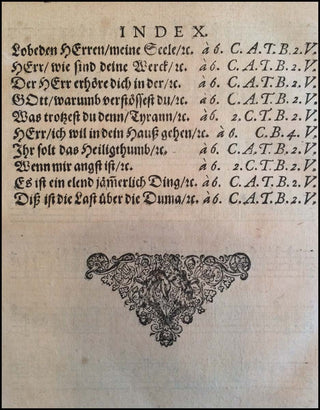 INDEX.
Lobeden HErren/meine Seele/ꝛc. à 6. C. A. T. B. 2. V.
HErr/wie sind deine Werck/ꝛc. à 6. C. A. T. B. 2. V.
Der HErr erhöre dich in der/ꝛc. à 6. C. A. T. B. 2. V.
GOtt/warumb verstössest du/ꝛc. à 6. C. A. T. B. 2. V.
Was trotzest du denn/Tyrann/ꝛc. à 6. 2. C. T. B. 2. V.
HErr/ich wil in dein Hauß gehen/ꝛc. à 6. C. B. 4. V.
Ihr solt das Heiligthumb/ꝛc. à 6. C. A. T. B. 2. V.
Wenn mir angst ist/ꝛc. à 6. 2. C. T. B. 2. V.
Es ist ein elend jäm̃erlich Ding/ꝛc. à 6. C. A. T. B. 2. V.
Diß ist die Last über die Duma/ꝛc. à 6. C. A. T. B. 2. V.